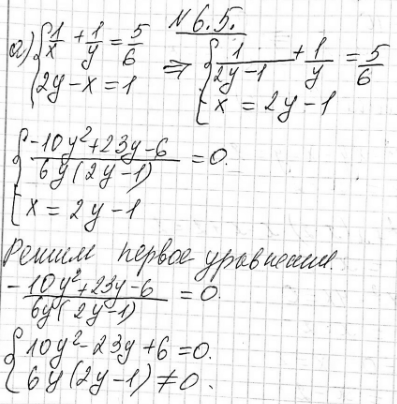 №6.5.
а) { 1/x + 1/y = 5/6 ⇒ { 1/(2y-1) + 1/y = 5/6
2y-x=1 x = 2y-1
{ (-10y²+23y-6)/(6y(2y-1)) = 0.
x = 2y-1
Решим первое уравнение.
-(10y²+23y-6)/(6y(2y-1)) = 0.
{ 10y²-23y+6=0.
6y(2y-1)≠0.